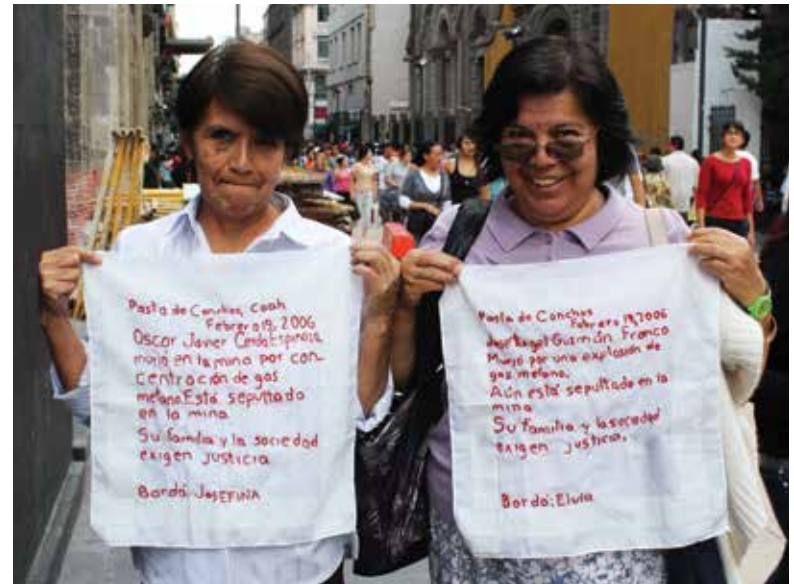 Pasta de Conchos, Coah
Febrero 19, 2006
Oscar Javier Cerda Espinoza
murió en la mina por con-
centración de gas
metano. Está sepultado
en la mina
Su familia y la sociedad
exigen justicia
Bordó: JOSEFINA
Pasta de Conchos
Febrero 19, 2006
José Angel Guzmán Franco
Murió por una explosión de
gas metano.
Aún está sepultado en la
mina
Su familia y la sociedad
exigen justicia.
Bordó: Elvia